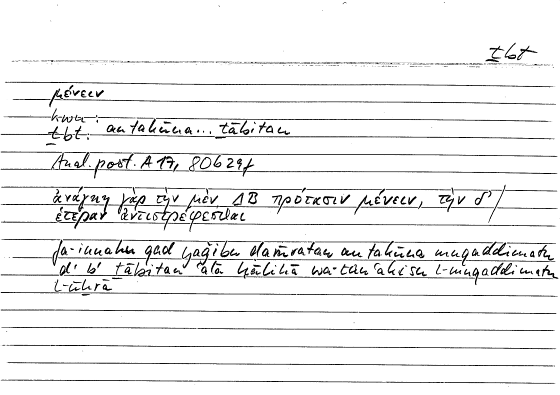 ṯbt
μένειν
kwn:
ṯbt: an takūna... ṯābitan
Anal. post. A 17, 80b29f
ἀνάγκη γὰρ τὴν μὲν ΔΒ πρότασιν μένειν, τὴν δ' /
ἑτέραν ἀντιστρέφεσθαι
fa-innahū qad yaǧibu ḍarūratan an takūna muqaddimatu
d' b' ṯābitan ʿalā ḥālihā wa-tanʿakisu l-muqaddimatu
l-uḫrā